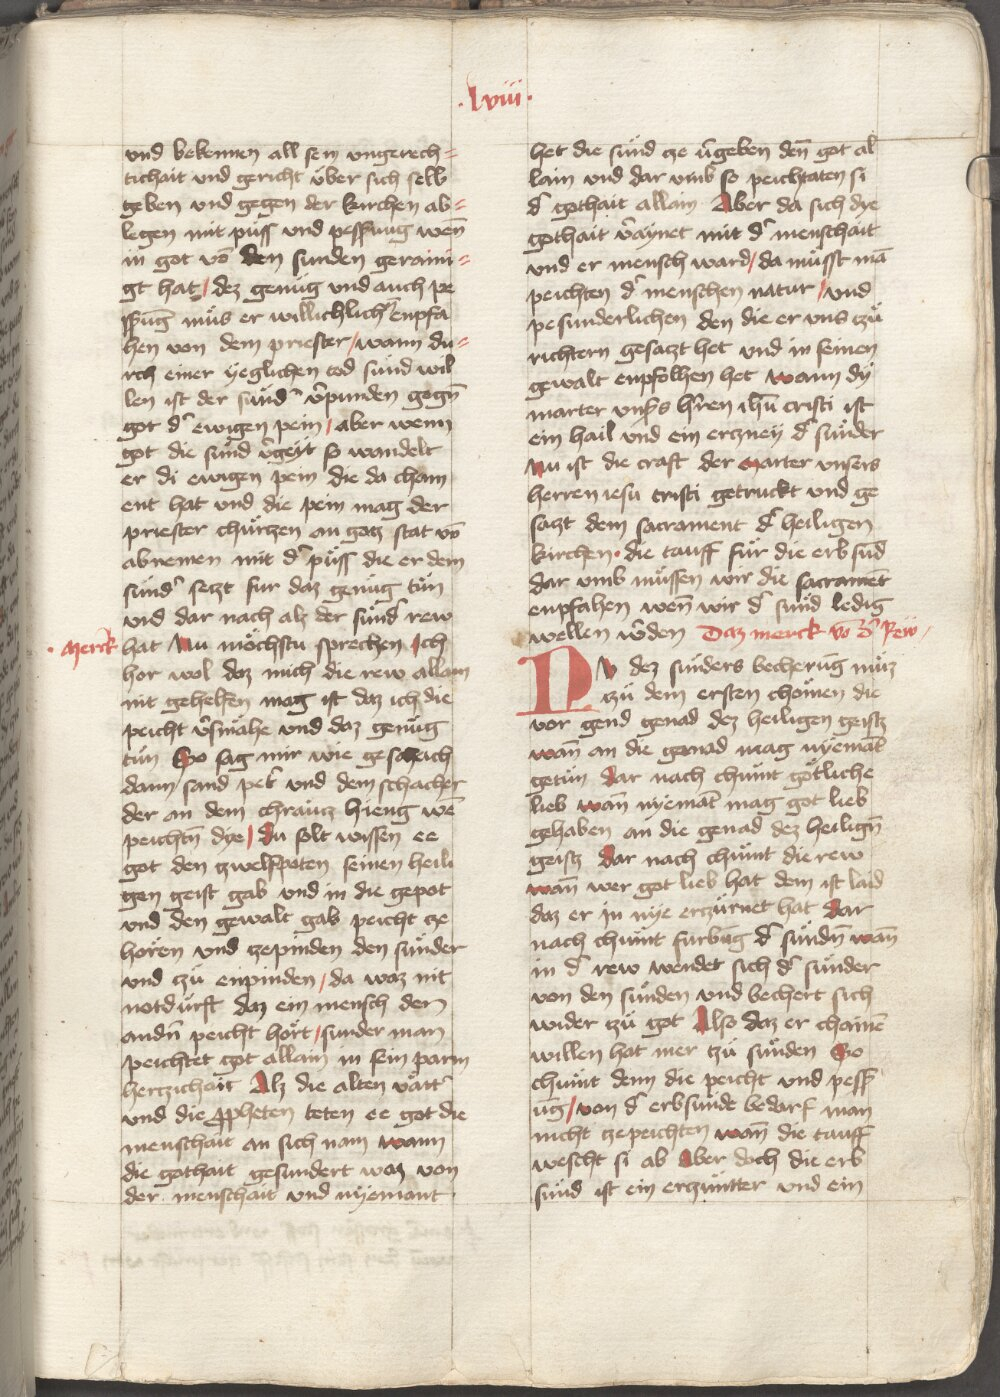 ·lviii·
vnd bekennen all sein vngerech=
tichait vnd gericht über sich selb
geben vnd gegen der kirchen ab=
legen mit püss vnd pessrung wen̄
in got vō den sunden geraini=
gt hat / dez genüg vnd auch pe
ssrūg müs er willichlich enpfa
hen von dem priester / wann du=
rch einer yeglichen tod sünd wil
len ist der sünd̕ v̕punden gegn̄
got d̕ ewigen pein / aber wenn
got die sünd v̕geyt so wandelt
er di ewigen pein die da cham
ent hat vnd die pein mag der
priester chürtzen an gotz stat vō
abnemen mit d̕ püss die er dem
sünd̕ setzt fur daz genüg tün
vnd dar nach alz der sünd̕ rew
Merck
hat Nu möchstu sprechen Ich
hor wol daz mich die rew allain
nit gehelfen mag ist daz ich die
peicht v̕smähe vnd daz genüg
tün So sag mir wie geschach
dann sand pet̕ vnd dem schacher
der an dem chräutz hieng wē
peichtn̄ dye / Du solt wissen ee
got den zwelfpoten seinen heili
gen geist gab vnd in die gepot
vnd den gewalt gab peicht ze
hören vnd zepinden den sünder
vnd tzü enpinden / da waz nit
notdürft daz ein mensch dem
andn̄ peicht hört / sunder man
peichtet got allain in sein parm
hertzichait Alz die alten vätt̕
vnd die ꝓpheten teten ee got die
menschait an sich nam wann
die gothait gesundert waz von
der menschait vnd nyemant
het die sünd ze v̕geben den̄ got al
lain vnd dar vmb so peichtaten si
d̕ gothait allain Aber da sich dye
gothait v̕aynet mit d̕ menschait
vnd er mensch ward / da müsst mā
peichten d̕ menschen natur / vnd
pesunderlichen den die er vns tzü
richtern gesatzt het vnd in seinen
gewalt enpfolhen het wann dy
marter vnsers h̕ren ihū cristi ist
ein hail vnd ein ertzney d̕ sünder
Nu ist die craft der marter vnsers
herren iesu cristi getruckt vnd ge
satzt dem sacrament d̕ heiligen
kirchen · die tauff für die erb sūd
dar vmb müssen wir die sacramēt
enpfahen wen̄ wir d̕ sünd ledig
wellen w̕den Daz merck vō d̕ Rew /
Nv dez sünders becherūg müz
tzü dem ersten chömen die
vor gend genad dez heiligen geistz
wan̄ an die genad mag nyemāt
getün dar nach chümt götliche
lieb wan̄ nyemāt mag got lieb
gehaben an die genad dez heilign̄
geistz Dar nach chümt die rew
wan̄ wer got lieb hat dem ist laid
daz er in nye ertzürnet hat Dar
nach chümt furbūg d̕ sündn̄ wan̄
in d̕ rew wendet sich d̕ sünder
von den sünden vnd bechert sich
wider tzü got Also daz er chainē
willen hat mer tzü sünden So
chümt denn die peicht vnd pessr
ūg / von d̕ erbsünde bedarf man
nicht zepeichten wan̄ die tauff
wescht si ab Aber doch die erb
sünd ist ein ertzüntter vnd ein